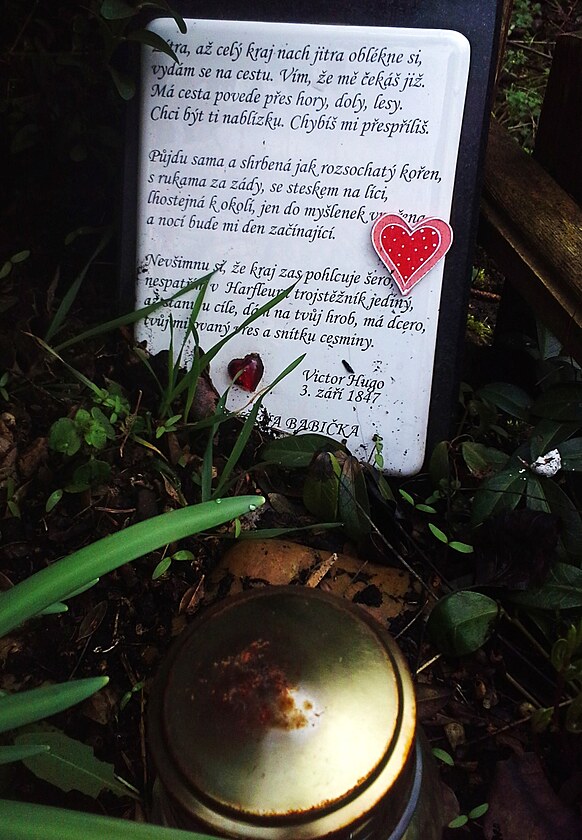 až celý kraj nach jitra oblékne si,
vydám se na cestu. Vím, že mě čekáš již.
Má cesta povede přes hory, doly, lesy.
Chci být ti nablízku. Chybíš mi přespříliš.
Půjdu sama a shrbená jak rozsochatý kořen,
s rukama za zády, se steskem na líci,
lhostejná k okolí, jen do myšlenek
a nocí bude mi den začínající.
Nevšimnu si, že kraj zas pohlcuje
nespatřím v Harfleuru trojstěžník jediný,
až stanu u cíle, dám na tvůj hrob, má dcero,
tvůj milovaný vřes a snítku cesmíny.
Victor Hugo
3. září 1847
BABIČKA